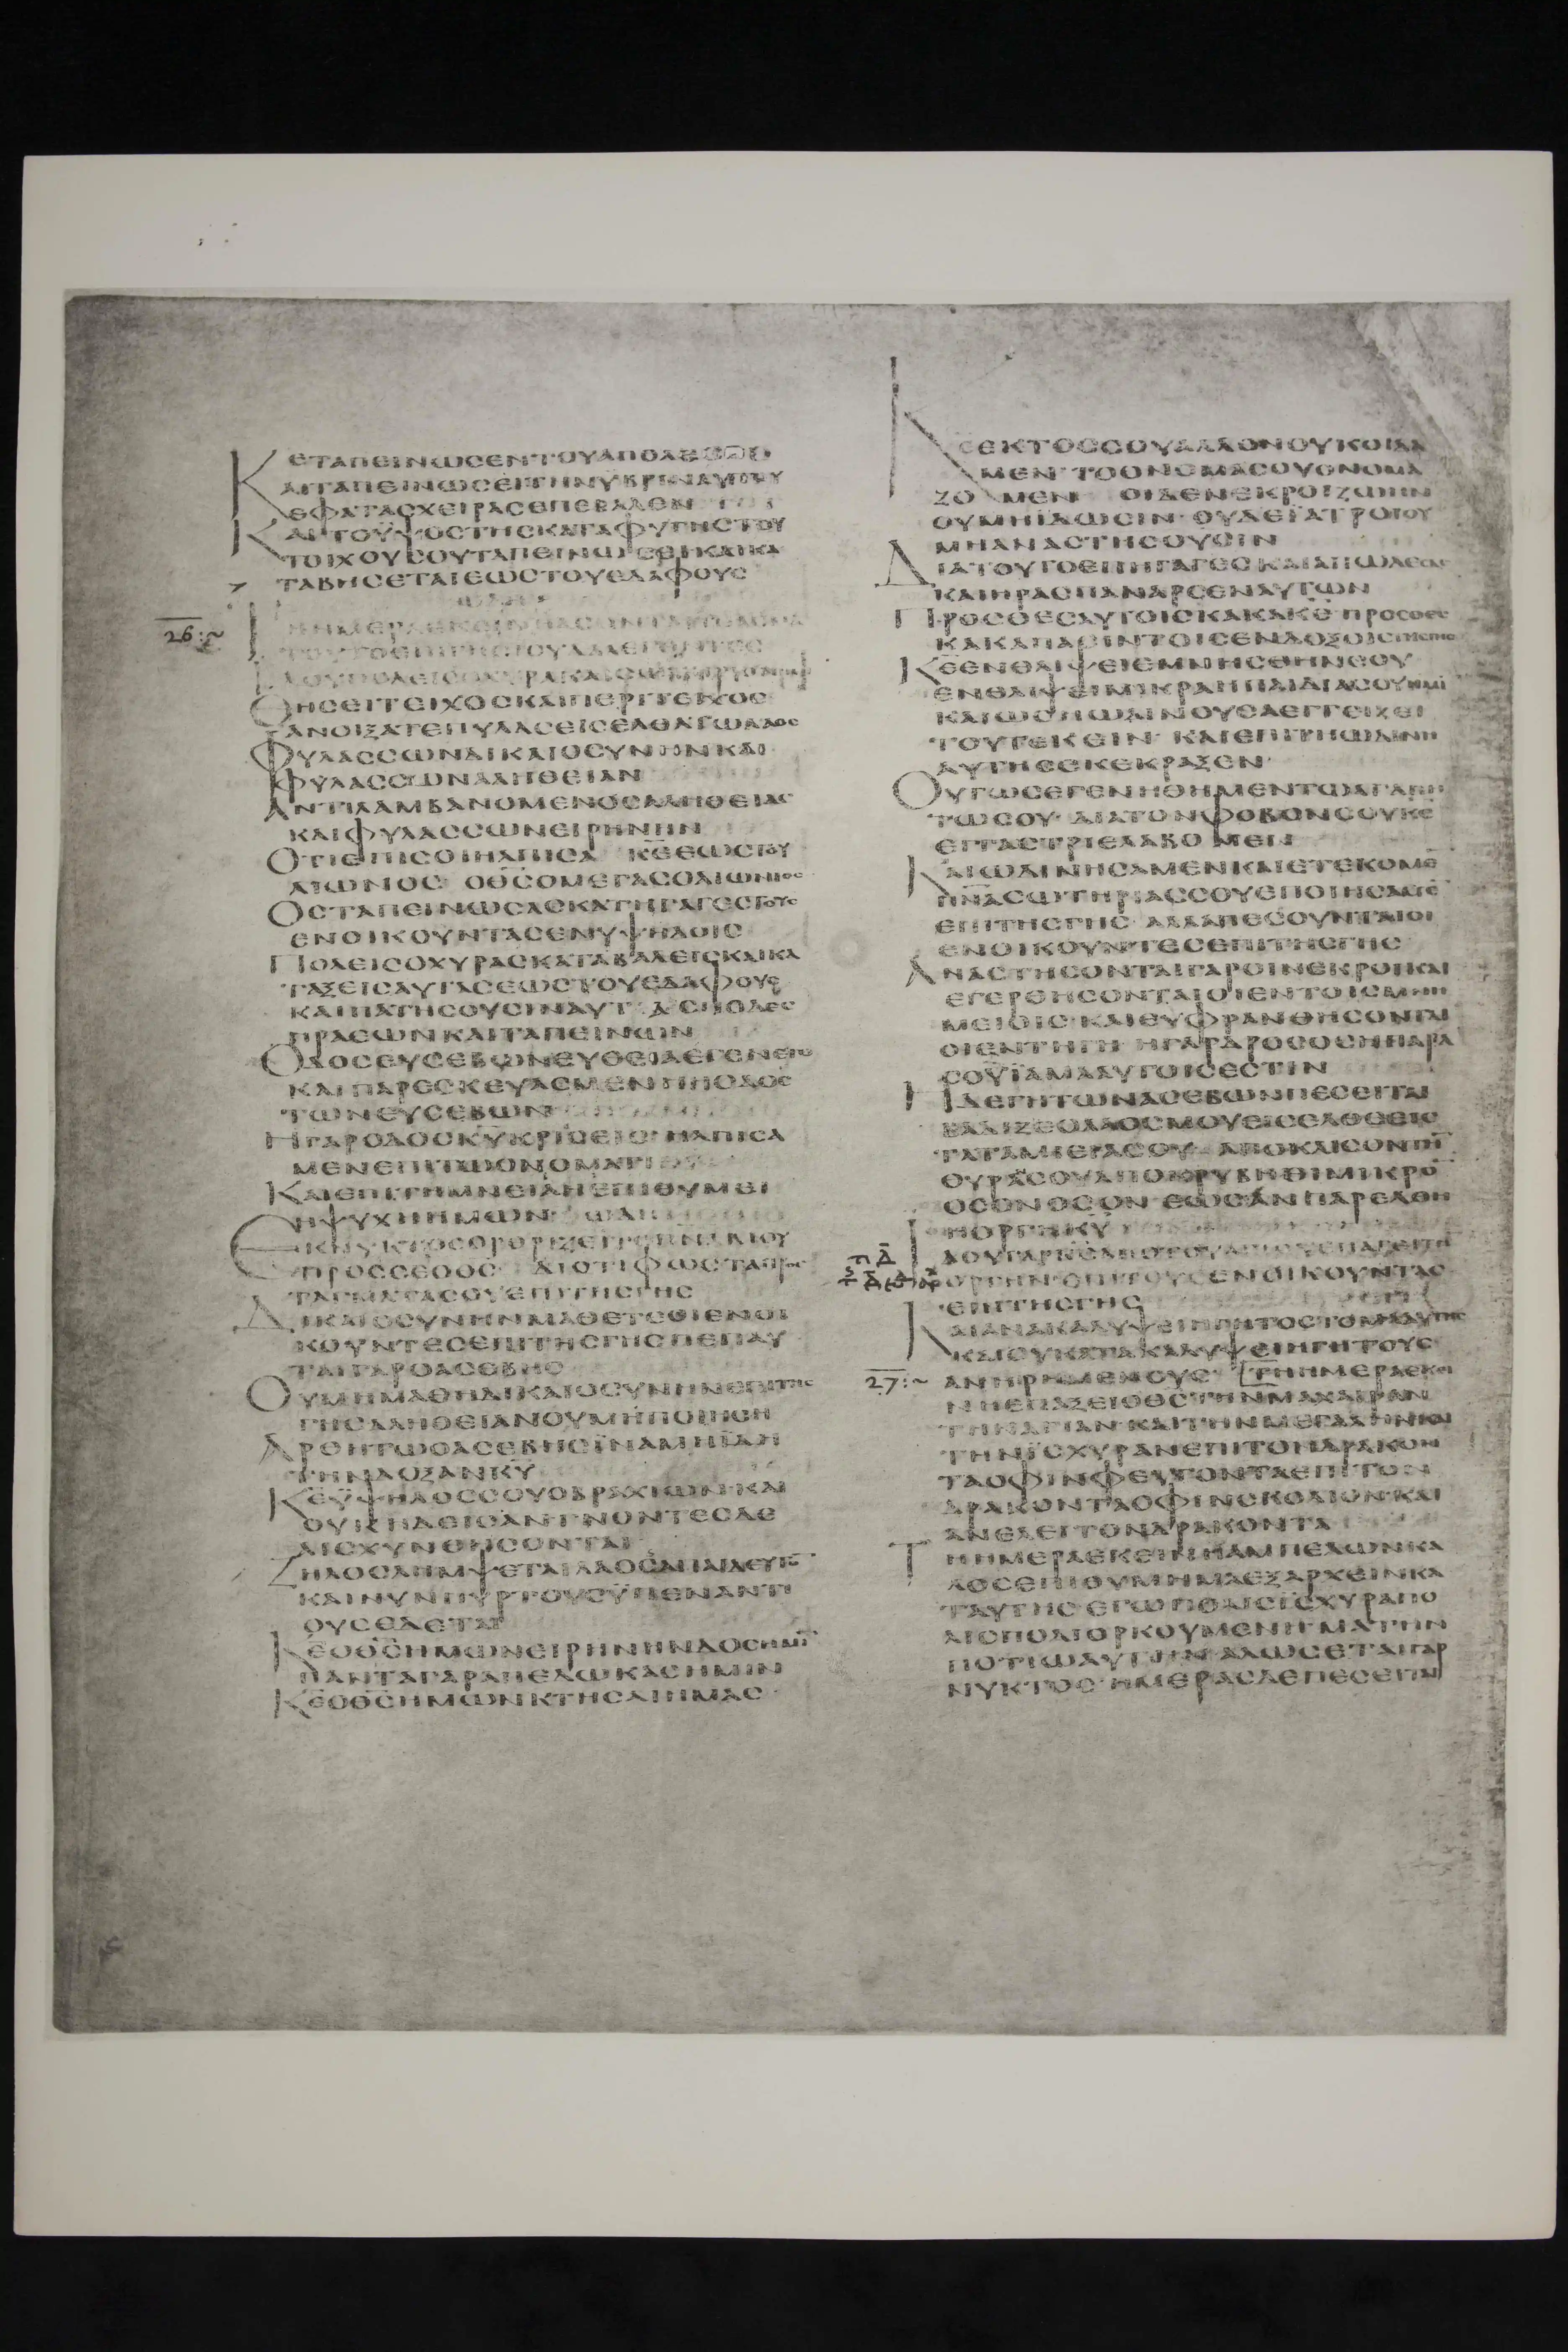 ΕΤΑΠΕΙΝΩΣΕΝΤΟΥΑΠΟΛΕ
ΚΑΙΤΑΠΕΙΝΩΣΕΙΤΗΝΥΒΡΙΝΑΥΤΟΥ
ΕΦΑΤΑΣΧΕΙΡΑΣΕΠΕΒΑΛΕΝ
ΚΑΙΤΟΫΨΟΣΤΗΣΚΑΤΑΦΥΓΗΣΤΟΥ
ΤΟΙΧΟΥΣΟΥΤΑΠΕΙΝΩΣΕΙΚΑΙΚΑ
ΤΑΒΗΣΕΤΑΙΕΩΣΤΟΥΕΔΑΦΟΥΣ
26:~
ΘΗΣΕΙΤΕΙΧΟΣΚΑΙΠΕΡΙΤΕΙΧΟΣ
ΑΝΟΙΞΑΤΕΠΥΛΑΣΕΙΣΕΛΘΑΤΩΛΑΟΣ
ΦΥΛΑΣΣΩΝΔΙΚΑΙΟΣΥΝΗΝΚΑΙ
ΦΥΛΑΣΣΩΝΑΛΗΘΕΙΑΝ
ΑΝΤΙΛΑΜΒΑΝΟΜΕΝΟΣΑΛΗΘΕΙΑΣ
ΚΑΙΦΥΛΑΣΣΩΝΕΙΡΗΝΗΝ
ΟΤΙΕΠΙΣΟΙΗΛΠΙΣΑ ΚΕΕΩΣΤΟΥ
ΑΙΩΝΟΣ ΟΘΣΟΜΕΓΑΣΟΑΙΩΝΙΟΣ
ΟΣΤΑΠΕΙΝΩΣΑΣΚΑΤΗΓΑΓΕΣΤΟΥΣ
ΕΝΟΙΚΟΥΝΤΑΣΕΝΥΨΗΛΟΙΣ
ΠΟΛΕΙΣΟΧΥΡΑΣΚΑΤΑΒΑΛΕΙΣΚΑΙΚΑ
ΤΑΞΕΙΣΑΥΤΑΣΕΩΣΤΟΥΕΔΑΦΟΥΣ
ΚΑΙΠΑΤΗΣΟΥΣΙΝΑΥΤΑΣΠΟΔΕΣ
ΠΡΑΕΩΝΚΑΙΤΑΠΕΙΝΩΝ
ΟΔΟΣΕΥΣΕΒΩΝΕΥΘΕΙΑΕΓΕΝΕΤΟ
ΚΑΙΠΑΡΕΣΚΕΥΑΣΜΕΝΗΗΟΔΟΣ
ΤΩΝΕΥΣΕΒΩΝ
ΗΓΑΡΟΔΟΣΚΥΚΡΙΣΕΙΣ ΗΛΠΙΣΑ
ΜΕΝΕΠΙΤΩΟΝΟΜΑΤΙ
ΚΑΙΕΠΙΤΗΜΝΕΙΑΗΕΠΙΘΥΜΕΙ
ΗΨΥΧΗΗΜΩΝ
ΕΚΝΥΚΤΟΣΟΡΘΡΙΖΕΙΤΟΠΝΑΜΟΥ
ΠΡΟΣΣΕΟΘΣ ΔΙΟΤΙΦΩΣΤΑΠΡΟΣ
ΤΑΓΜΑΤΑΣΟΥΕΠΙΤΗΣΓΗΣ
ΔΙΚΑΙΟΣΥΝΗΝΜΑΘΕΤΕΟΙΕΝΟΙ
ΚΟΥΝΤΕΣΕΠΙΤΗΣΓΗΣΠΕΠΑΥ
ΤΑΙΓΑΡΟΑΣΕΒΗΣ
ΟΥΜΗΜΑΘΗΔΙΚΑΙΟΣΥΝΗΝΕΠΙΤΗΣ
ΓΗΣΑΛΗΘΕΙΑΝΟΥΜΗΠΟΙΗΣΗ
ΑΡΘΗΤΩΟΑΣΕΒΗΣΪΝΑΜΗΪΔΗ
ΤΗΝΔΟΞΑΝΚΥ
ΚΕΫΨΗΛΟΣΣΟΥΟΒΡΑΧΙΩΝΚΑΙ
ΟΥΚΗΔΕΙΣΑΝΓΝΟΝΤΕΣΔΕ
ΑΙΣΧΥΝΘΗΣΟΝΤΑΙ
ΖΗΛΟΣΛΗΜΨΕΤΑΙΛΑΟΝΑΠΑΙΔΕΥΤΟ
ΚΑΙΝΥΝΠΥΡΤΟΥΣΫΠΕΝΑΝΤΙ
ΟΥΣΕΔΕΤΑΙ
ΚΕΟΘΣΗΜΩΝΕΙΡΗΝΗΝΔΟΣΗΜΙ
ΠΑΝΤΑΓΑΡΑΠΕΔΩΚΑΣΗΜΙΝ
ΚΕΟΘΣΗΜΩΝΚΤΗΣΑΙΗΜΑΣ
ΚΕΕΚΤΟΣΣΟΥΑΛΛΟΝΟΥΚΟΙΔΑ
ΜΕΝ ΤΟΟΝΟΜΑΣΟΥΟΝΟΜΑ
ΖΟΜΕΝ ΟΙΔΕΝΕΚΡΟΙΖΩΗΝ
ΟΥΜΗΪΔΩΣΙΝ ΟΥΔΕΪΑΤΡΟΙΟΥ
ΜΗΑΝΑΣΤΗΣΟΥΣΙΝ
ΔΙΑΤΟΥΤΟΕΠΗΓΑΓΕΣΚΑΙΑΠΩΛΕΣΑΣ
ΚΑΙΗΡΑΣΠΑΝΑΡΣΕΝΑΥΤΩΝ
ΠΡΟΣΘΕΣΑΥΤΟΙΣΚΑΚΑΚΕ ΠΡΟΣΘΕΣ
ΚΑΚΑΠΑΣΙΝΤΟΙΣΕΝΔΟΞΟΙΣ
ΚΕΕΝΘΛΙΨΕΙΕΜΝΗΣΘΗΝΣΟΥ
ΕΝΘΛΙΨΕΙΜΙΚΡΑΗΠΑΙΔΙΑΣΟΥΗΜΙ
ΚΑΙΩΣΗΩΔΙΝΟΥΣΑΕΓΓΙΖΕΙ
ΤΟΥΤΕΚΕΙΝ ΚΑΙΕΠΙΤΗΩΔΙΝΙ
ΑΥΤΗΣΕΚΕΚΡΑΞΕΝ
ΟΥΤΩΣΕΓΕΝΗΘΗΜΕΝΤΩΑΓΑΠΗ
ΤΩΣΟΥ ΔΙΑΤΟΝΦΟΒΟΝΣΟΥΚΕ
ΕΓΓΑΣΤΡΙΕΛΑΒΟΜΕΝ
ΚΑΙΩΔΙΝΗΣΑΜΕΝΚΑΙΕΤΕΚΟΜΕ
ΠΝΑΣΩΤΗΡΙΑΣΣΟΥΕΠΟΙΗΣΑΜΕ
ΕΠΙΤΗΣΓΗΣ ΑΛΛΑΠΕΣΟΥΝΤΑΙΟΙ
ΕΝΟΙΚΟΥΝΤΕΣΕΠΙΤΗΣΓΗΣ
ΑΝΑΣΤΗΣΟΝΤΑΙΓΑΡΟΙΝΕΚΡΟΙΚΑΙ
ΕΓΕΡΘΗΣΟΝΤΑΙΟΙΕΝΤΟΙΣΜΝΗ
ΜΕΙΟΙΣ ΚΑΙΕΥΦΡΑΝΘΗΣΟΝΤΑΙ
ΟΙΕΝΤΗΓΗ ΗΓΑΡΔΡΟΣΟΣΗΠΑΡΑ
ΣΟΥΪΑΜΑΑΥΤΟΙΣΕΣΤΙΝ
ΗΔΕΓΗΤΩΝΑΣΕΒΩΝΠΕΣΕΙΤΑΙ
ΒΑΔΙΖΕΟΛΑΟΣΜΟΥΕΙΣΕΛΘΕΕΙΣ
ΤΑΤΑΜΙΕΙΑΣΟΥ ΑΠΟΚΛΙΣΟΝΤΗ
ΘΥΡΑΣΟΥΑΠΟΚΡΥΒΗΘΙΜΙΚΡΟ
ΟΣΟΝΟΣΟΝ ΕΩΣΑΝΠΑΡΕΛΘΗ
ΗΟΡΓΗΚΥ
ΙΔΟΥΓΑΡΚΣΑΠΟΤΟΥΑΓΙΟΥΕΠΑΓΕΙΤΗ
ΟΡΓΗΝΕΠΙΤΟΥΣΕΝΟΙΚΟΥΝΤΑΣ
ΕΠΙΤΗΣΓΗΣ
ΚΑΙΑΝΑΚΑΛΥΨΕΙΗΓΗΤΟΣΤΟΜΑΑΥΤΗΣ
ΚΑΙΟΥΚΑΤΑΚΑΛΥΨΕΙΗΓΗΤΟΥΣ
27:~ ΑΝΗΡΗΜΕΝΟΥΣ ΤΗΗΜΕΡΑΕΚΕΙ
ΝΗΕΠΑΞΕΙΟΘΣΤΗΝΜΑΧΑΙΡΑΝ
ΤΗΝΑΓΙΑΝΚΑΙΤΗΝΜΕΓΑΛΗΝΚΑΙ
ΤΗΝΪΣΧΥΡΑΝΕΠΙΤΟΝΔΡΑΚΟΝ
ΤΑΟΦΙΝΦΕΥΓΟΝΤΑΕΠΙΤΟΝ
ΔΡΑΚΟΝΤΑΟΦΙΝΣΚΟΛΙΟΝΚΑΙ
ΑΝΕΛΕΙΤΟΝΔΡΑΚΟΝΤΑ
ΤΗΗΜΕΡΑΕΚΕΙΝΗΑΜΠΕΛΩΝΚΑ
ΛΟΣΕΠΙΘΥΜΗΜΑΕΞΑΡΧΕΙΝΚΑ
ΤΑΥΤΗΣ ΕΓΩΠΟΛΙΣΪΣΧΥΡΑΠΟ
ΛΙΣΠΟΛΙΟΡΚΟΥΜΕΝΗΜΑΤΗΝ
ΠΟΤΙΩΑΥΤΗΝΑΛΩΣΕΤΑΙΓΑΡ
ΝΥΚΤΟΣ ΗΜΕΡΑΣΔΕΠΕΣΕΙΤΑΙ